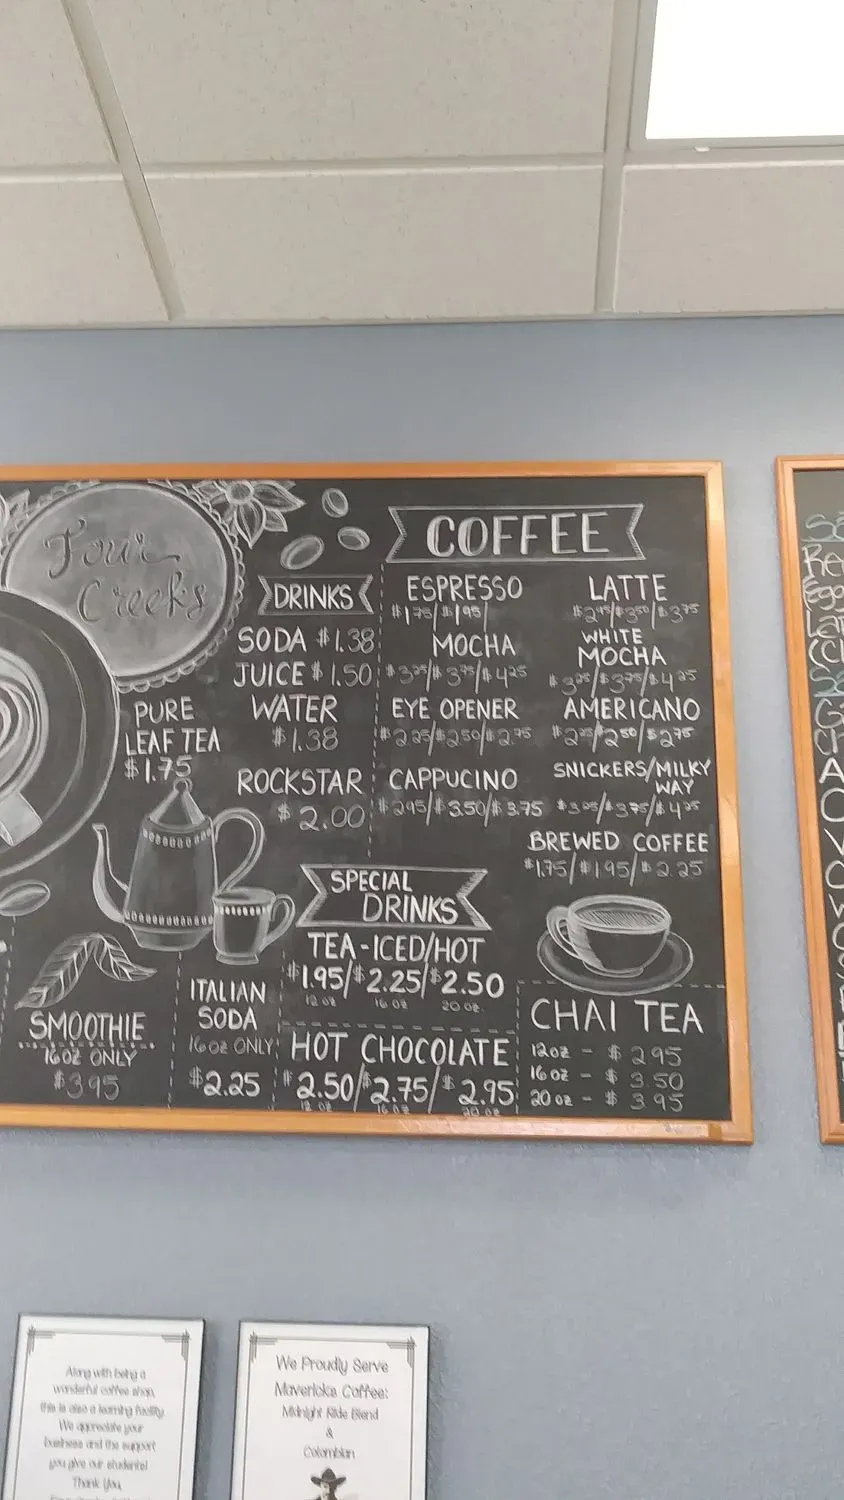 Four
Creeks
DRINKS
SODA $1.38
JUICE $1.50
WATER
$1.38
PURE
LEAF TEA
$1.75
ROCKSTAR
$2.00
COFFEE
ESPRESSO
$1.75/$1.95/
LATTE
$2.95/$3.50/$3.75
MOCHA
$3.25/$3.75/$4.25
WHITE
MOCHA
$3.25/$3.75/$4.25
EYE OPENER
$2.25/$2.50/$2.75
AMERICANO
$2.25/$2.50/$2.75
CAPPUCINO
$2.95/$3.50/$3.75
SNICKERS/MILKY
WAY
$3.25/$3.75/$4.25
BREWED COFFEE
$1.75/$1.95/$2.25
SPECIAL
DRINKS
TEA-ICED/HOT
$1.95/$2.25/$2.50
12 oz 16 oz 20 oz
SMOOTHIE
16OZ ONLY
$3.95
ITALIAN
SODA
16OZ ONLY
$2.25
HOT CHOCOLATE
$2.50/$2.75/$2.95
12 oz 16 oz 20 oz
CHAI TEA
12oz - $2.95
16oz - $3.50
20oz - $3.95
Along with being a
wonderful coffee shop,
this is also a learning facility.
We appreciate your
business and the support
you give our students!
Thank You,
We Proudly Serve
Mavericks Coffee:
Midnight Ride Blend
&
Colombian